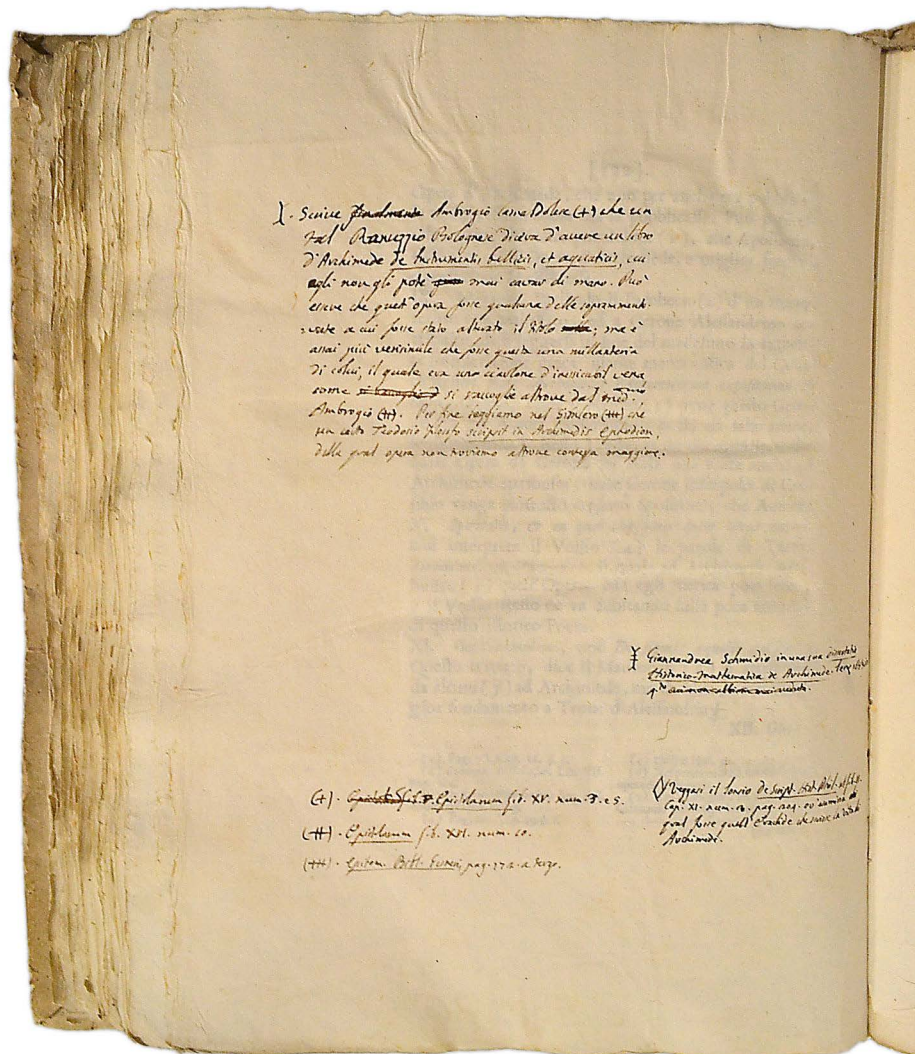 . Scrive ~~finalmente~~ Ambrogio Camaldolese (+) che un
tal Ranuzzio Bolognese diceva d'avere un libro
d'Archimede de Instrumentis bellicis, et aquaticis, cui
egli non gli potè mai cavar di mano. Può
essere che quest'opera fosse qualcuna delle soprammento-
vate a cui fosse stato alterato il titolo; ma è
assai più verisimile che fosse questa una millanteria
di colui, il quale era uno ciarlone d'insiccabil vena
come si raccoglie altrove dal med.mo
Ambrogio (++). Per fine leggiamo nel Simlero (+++) che
un certo Teodosio filosofo scripsit in Archimedis Ephodion,
della qual opera non troviamo altrove contezza maggiore.
Giannandrea Schmidio in una sua
Historico-Mathematica de Archimede
XII.
(+). Epistolarum lib. XV. num. 3. e 5.
(++). Epistolarum lib. XVI. num. 10.
(+++). Epitom. Bibl. pag. 172. a tergo.
Veggasi il Jonsio de Script. Hist. Phil.
Cap. XI. num. pag. ove
qual fosse quell'Eraclide che scrisse la vita di
Archimede.